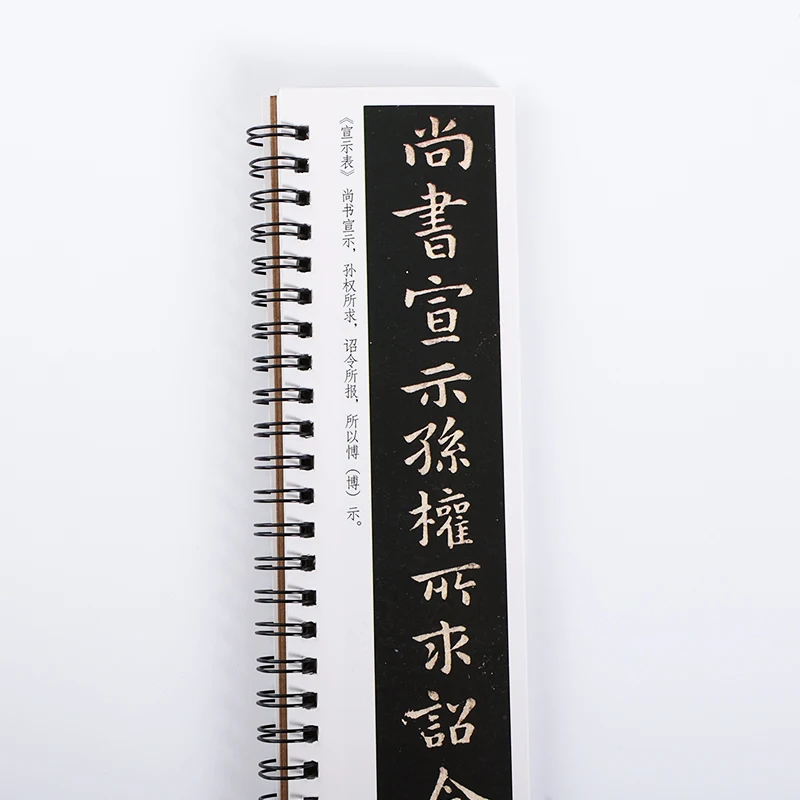 尚書宣示孫權所求詔令
《宣示表》 尚书宣示，孙权所求，诏令所报，所以愽（博）示。